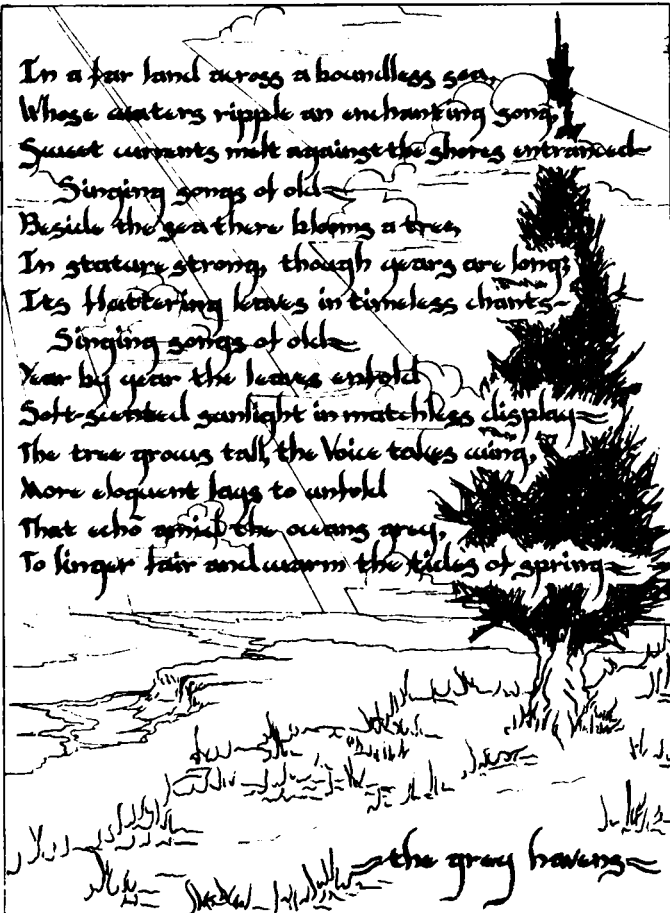 In a far land across a boundless sea,
Whose waters ripple an enchanting song,
Sweet currents melt against the shores entranced-
Singing songs of old-
Beside the sea there blooms a tree,
In stature strong, though years are long;
Its flattering leaves in timeless chants-
Singing songs of old-
Year by year the leaves enfold
Soft-scented sunlight in matchless display-
The tree grows tall, the Voice takes wing,
More eloquent lays to unfold
That echo amid the oceans grey,
To linger fair and warm the tides of spring-
-the grey havens-